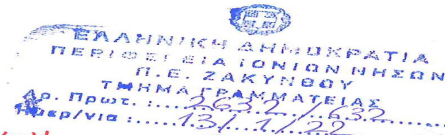 ΕΛΛΗΝΙΚΗ ΔΗΜΟΚΡΑΤΙΑ
ΠΕΡΙΦΕΡΕΙΑ ΙΟΝΙΩΝ ΝΗΣΩΝ
Π.Ε. ΖΑΚΥΝΘΟΥ
ΤΜΗΜΑ ΓΡΑΜΜΑΤΕΙΑΣ
Αρ. Πρωτ. : 2632/632
Ημερ/νια : 13/1/22